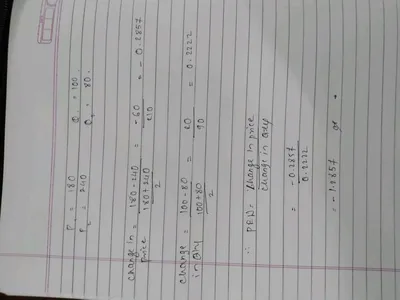 P₁ = 180 Q₁ = 100
P₂ = 240 Q₂ = 80.
change in price = 180 - 240 / (180 + 240 / 2) = -60 / 210 = -0.2857
change in qty = 100 - 80 / (100 + 80 / 2) = 20 / 90 = 0.2222
∴ PED = change in price / change in qty
= -0.2857 / 0.2222
= -1.2857 or